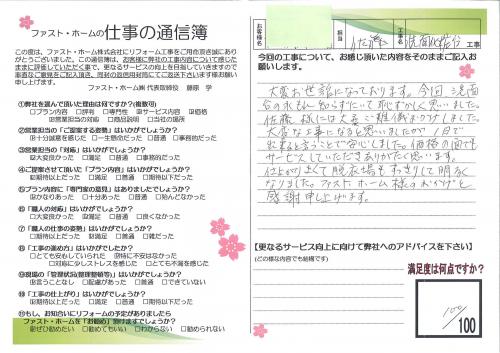 ファスト・ホームの仕事の通信簿
この度は、ファスト・ホーム株式会社にリフォーム工事をご用命頂き誠にあり
がとうございました。この通信簿は、お客様に弊社の工事内容について感じた
ままに評価していただく事で、更なるサービスの向上を目指していきますので
率直なご意見をご記入頂き、同封の返信用封筒にてご返送下さいます様お願い
申し上げます。
ファスト・ホーム㈱ 代表取締役 藤原 学
①弊社を選んで頂いた理由は何ですか?(複数可)
□プラン内容 □評判 □専門性 ☑サービス内容 ☑価格
□営業担当の対応 □商品説明 □当社の場所
②営業担当の「ご提案する姿勢」はいかがでしょうか?
☑十分誠意を感じた □一生懸命だった □普通 □事務的だった
③営業担当の「対応」はいかがでしょうか?
☑大変良かった □満足 □普通 □事務的だった
④ご提案させて頂いた「プラン内容」はいかがでしょうか?
☑期待以上だった □満足 □普通 □期待以下だった
⑤プラン内容に「専門家の意見」はありましたでしょうか?
☑かなりあった □十分あった □普通 □殆んどなかった
⑥「職人の対応」はいかがでしょうか?
☑大変良かった □満足 □普通 □良くなかった
⑦「職人の仕事の姿勢」はいかがでしょうか?
⑧「工事の進め方」はいかがでしたか?
□とても安心していられた ☑特に不安はなかった
□対応に少しストレスを感じた □とても不満を感じた
⑨現場の「管理状況(整理整頓等)」はいかがでしたか?
□普通 □できていない
⑩「工事の仕上がり」はいかがでしたか?
☑期待以上だった □満足 □普通 □期待以下だった
⑪もし、お知合いにリフォームの予定がありましたら
ファスト・ホームを「お勧め」頂けますでしょうか?
☑ぜひ勧めたい □勧めてもいい □わからない □勧められない
お客様名
担当
工事名
洗面化粧台
工事
今回の工事について、お感じ頂いた内容をそのままご記入お
願いします。
大変お世話になっております。今回、洗面
台の水もれ 知らずにいて 恥ずかしく思いました。
佐藤様には大変ご難儀おかけしました。
大変な工事になると思いましたが 1日で
価格の面でも
サービスしていただきありがたく思います。
仕上がりもよくて脱衣場もすっきりして明るく
なりました。ファストホーム様のおかげと
感謝申し上げます。
【更なるサービス向上に向けて弊社へのアドバイスを下さい】
(どの様な内容でも結構です)
満足度は何点ですか?
100
100